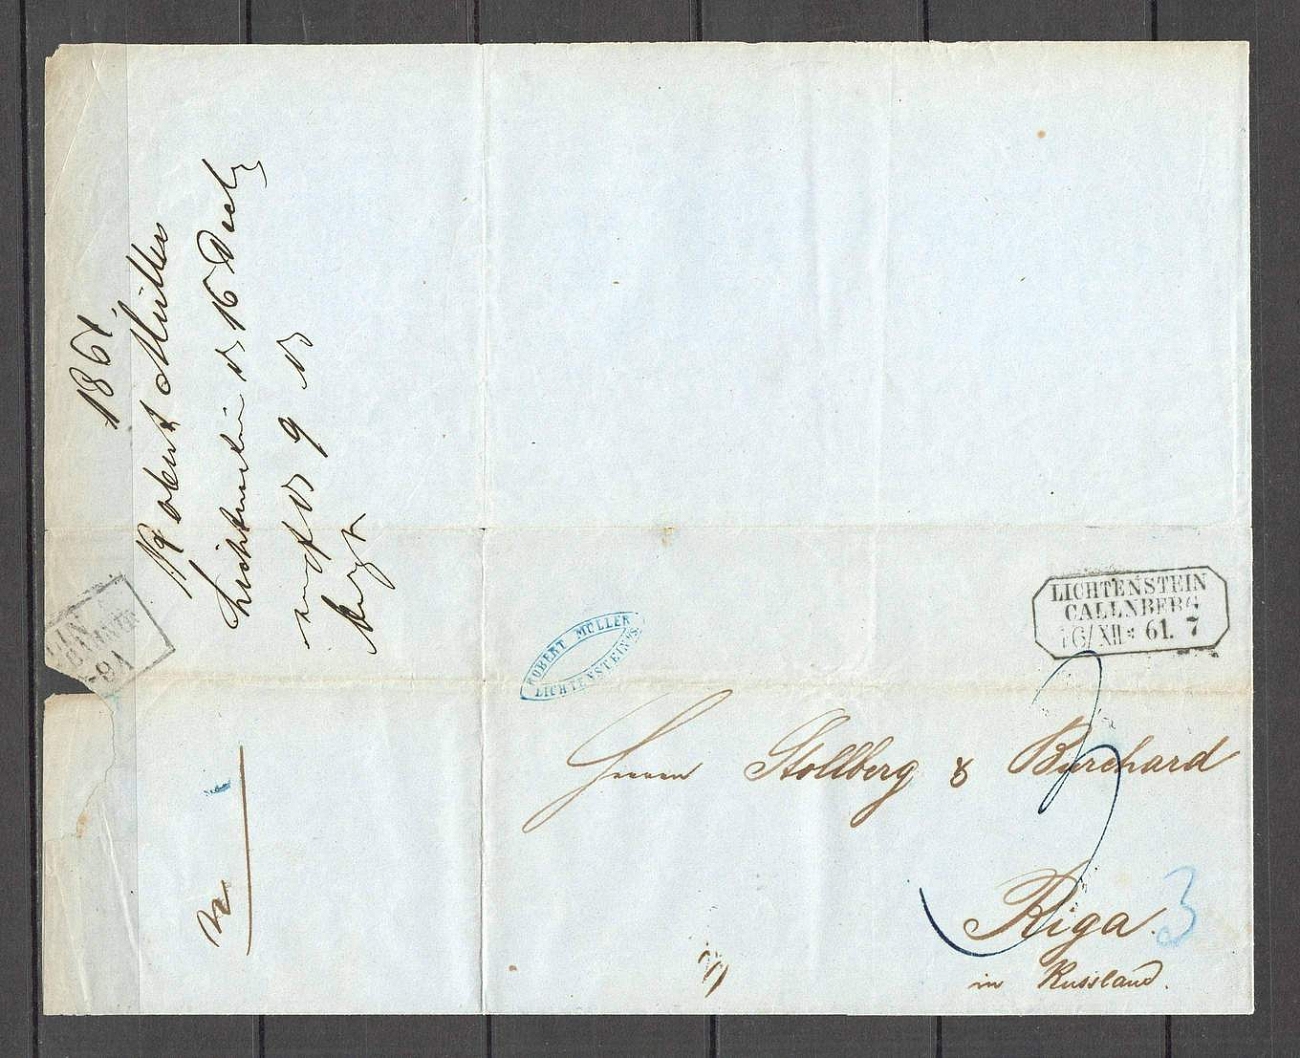 1861.
Robert Müller
Lichtenstein 16 Decbr
9
LICHTENSTEIN
CALLNBERG
16/XII 61. 7
ROBERT MÜLLER
LICHTENSTEIN
Herren Stollberg & Burchard
Riga.
3
in Russland.